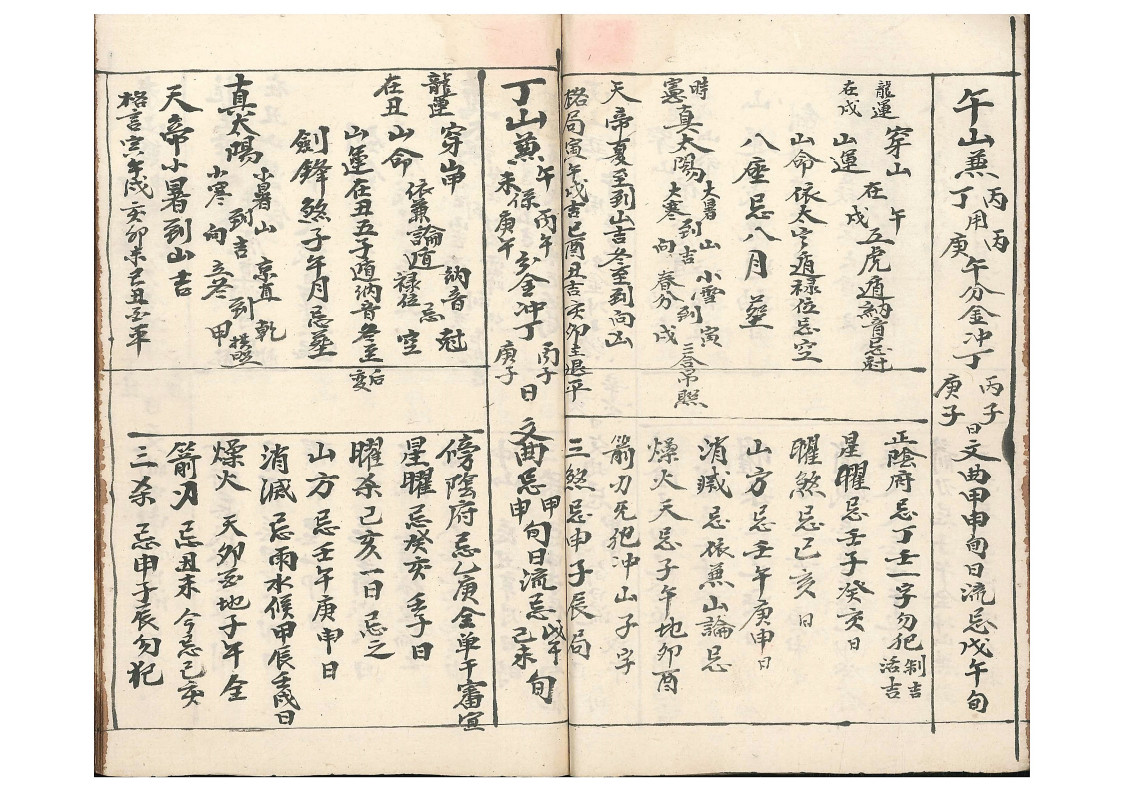 午山兼丙丁用丙庚午分金冲丁丙子庚子日文曲甲申旬日流忌戊午旬
龍運在戌
穿山午
山運在戌五虎遁納音忌尅
山命依太宀遁禄位忌空
八座忌八月塟
時憲真太陽大暑到山大寒到向吉小雪到寅春分戌三合吊照
天帝夏至到山吉冬至到向凶
格局寅午戌吉巳酉丑吉亥卯未退平
正陰府忌丁壬一字勿犯制吉活吉
星曜忌壬子癸亥日
曜煞忌己亥日
山方忌壬午庚申日
消滅忌依兼山論忌
燥火天忌子午地卯酉
箭刃死犯冲山子字
三煞忌申子辰局
丁山兼午未係丙午庚午分金冲丁丙子庚子日文曲忌甲申旬日流忌戊午己未旬
龍運在丑
穿山甲納音忌尅
山命依兼論遁禄位忌空
山運在丑五子遁納音冬至后变
劍鋒煞子午月忌塟
真太陽小暑山小寒向到吉京直立冬到乾甲拱照
天帝小暑到山吉
格言寅午戌亥卯未巳丑酉平
傍陰府忌乙庚全单干審宜
星曜忌癸亥壬子日
曜杀己亥一日忌之
山方忌壬午庚申日
消滅忌雨水候甲辰壬戌日
燥火天卯酉地子午全
箭刃忌丑未今忌己亥
三杀忌申子辰勿犯